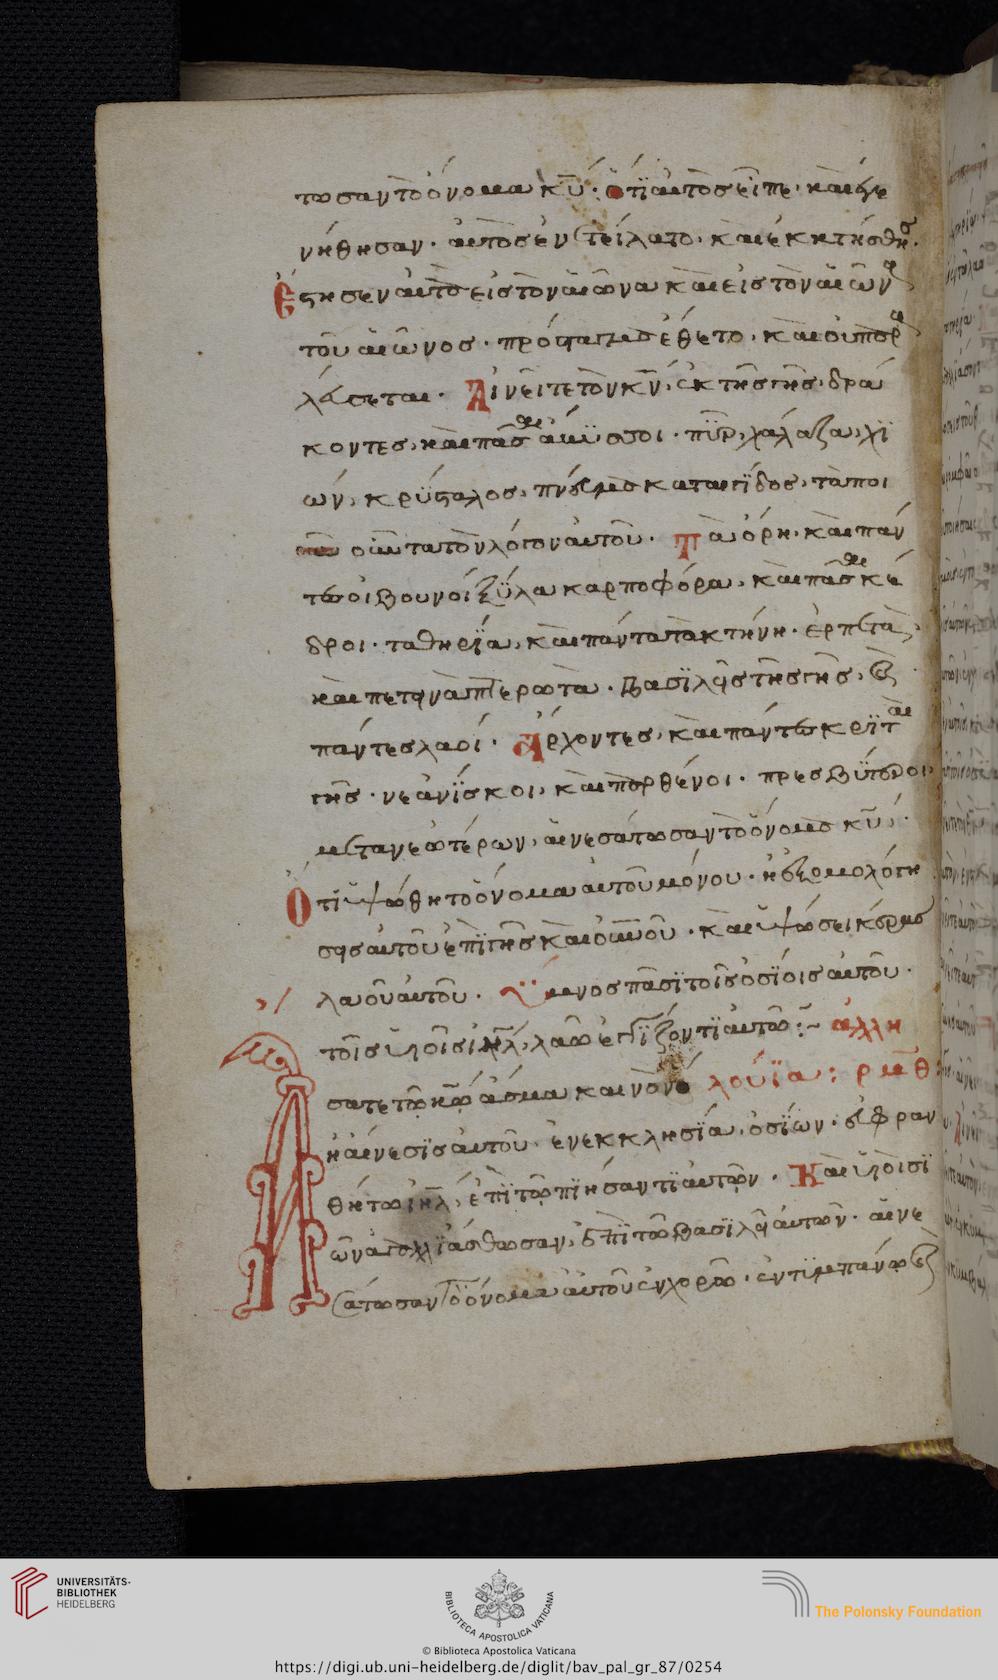 τωσαν τὸ ὄνομα κ̅υ̅· ὅτϊ αὐτὸς εἶπε· καὶ ἐγε
νήθησαν· αὐτὸς ἐνετείλατο· καὶ ἐκτήσθησ·
Ἔστησεν αὐτὰ εἰς τὸν αἰῶνα καὶ εἰς τὸν αἰῶνα
τοῦ αἰῶνος· πρόσταγμα ἔθετο· καὶ οὐ παρε
λεύσεται· Αἰνεῖτε τὸν κ̅ν̅, ἐκ τῆς γῆς· δρά
κοντες, καὶ πᾶσαι ἄβϋσσοι· πῦρ, χάλαζα, χϊ
ών, κρϋσταλος, πν̅α καταιγΐδος, τὰ ποι
οῦντα τὸν λόγον αὐτοῦ· Τὰ ὄρη· καὶ πάν
τες οἱ βουνοί ξϋλα καρποφόρα, καὶ πᾶσαι κέ
δροι· τα θηρΐα, καὶ πάντα τὰ κτήνη· ἑρπετὰ,
καὶ πετεινὰ πτερωτὰ· Βασϊλεῖς τῆς γῆς, καὶ
πάντες λαοί· Ἄρχοντες, καὶ πάντες κρϊταὶ
γῆς· νεανΐσκοι, καὶ παρθένοι· πρεσβϋτεροι,
μετα νεωτέρων, αἰνεσάτωσαν τὸ ὄνομα κ̅υ̅,·
Ὅτϊ ὑψώθη τὸ ὄνομα αὐτοῦ μόνου· ἡ ἐξομολόγη
σεις αὐτοῦ ἐπϊ γῆς καὶ οὐ̅νοῦ· καὶ ὑψώσει κέρας
λαοῦ αὐτοῦ· Ὕμνος πᾶσϊ τοῖς ὁσΐοις αὐτοῦ·
τοῖς υἱοῖς ἰη̅λ, λαῶ ἐγγΐζοντϊ αὐτῶ:~ ἀλλη
λούϊα: ρμθ
Ἄσατε τῶ κ̅ω̅ ἆσμα καινὸν
ἡ αἴνεσϊς αὐτοῦ· ἐν ἐκκλησΐα, ὁσΐων· εὐφραν
θήτω ιη̅λ, ἐπϊ τῶ πϊήσαντϊ αὐτῶν· Καὶ υἱοὶ σϊ
ὼν ἀγαλλϊάσθωσαν, ἐπϊ τῶ βασϊλεῖ αὐτῶν· αἰνε
σάτωσαν τὸ ὄνομα αὐτοῦ ἐν χορῶ· ἐν τϊμπάνω καὶ
UNIVERSITÄTS-
BIBLIOTHEK
HEIDELBERG
BIBLIOTECA APOSTOLICA VATICANA
The Polonsky Foundation
© Biblioteca Apostolica Vaticana
https://digi.ub.uni-heidelberg.de/diglit/bav_pal_gr_87/0254